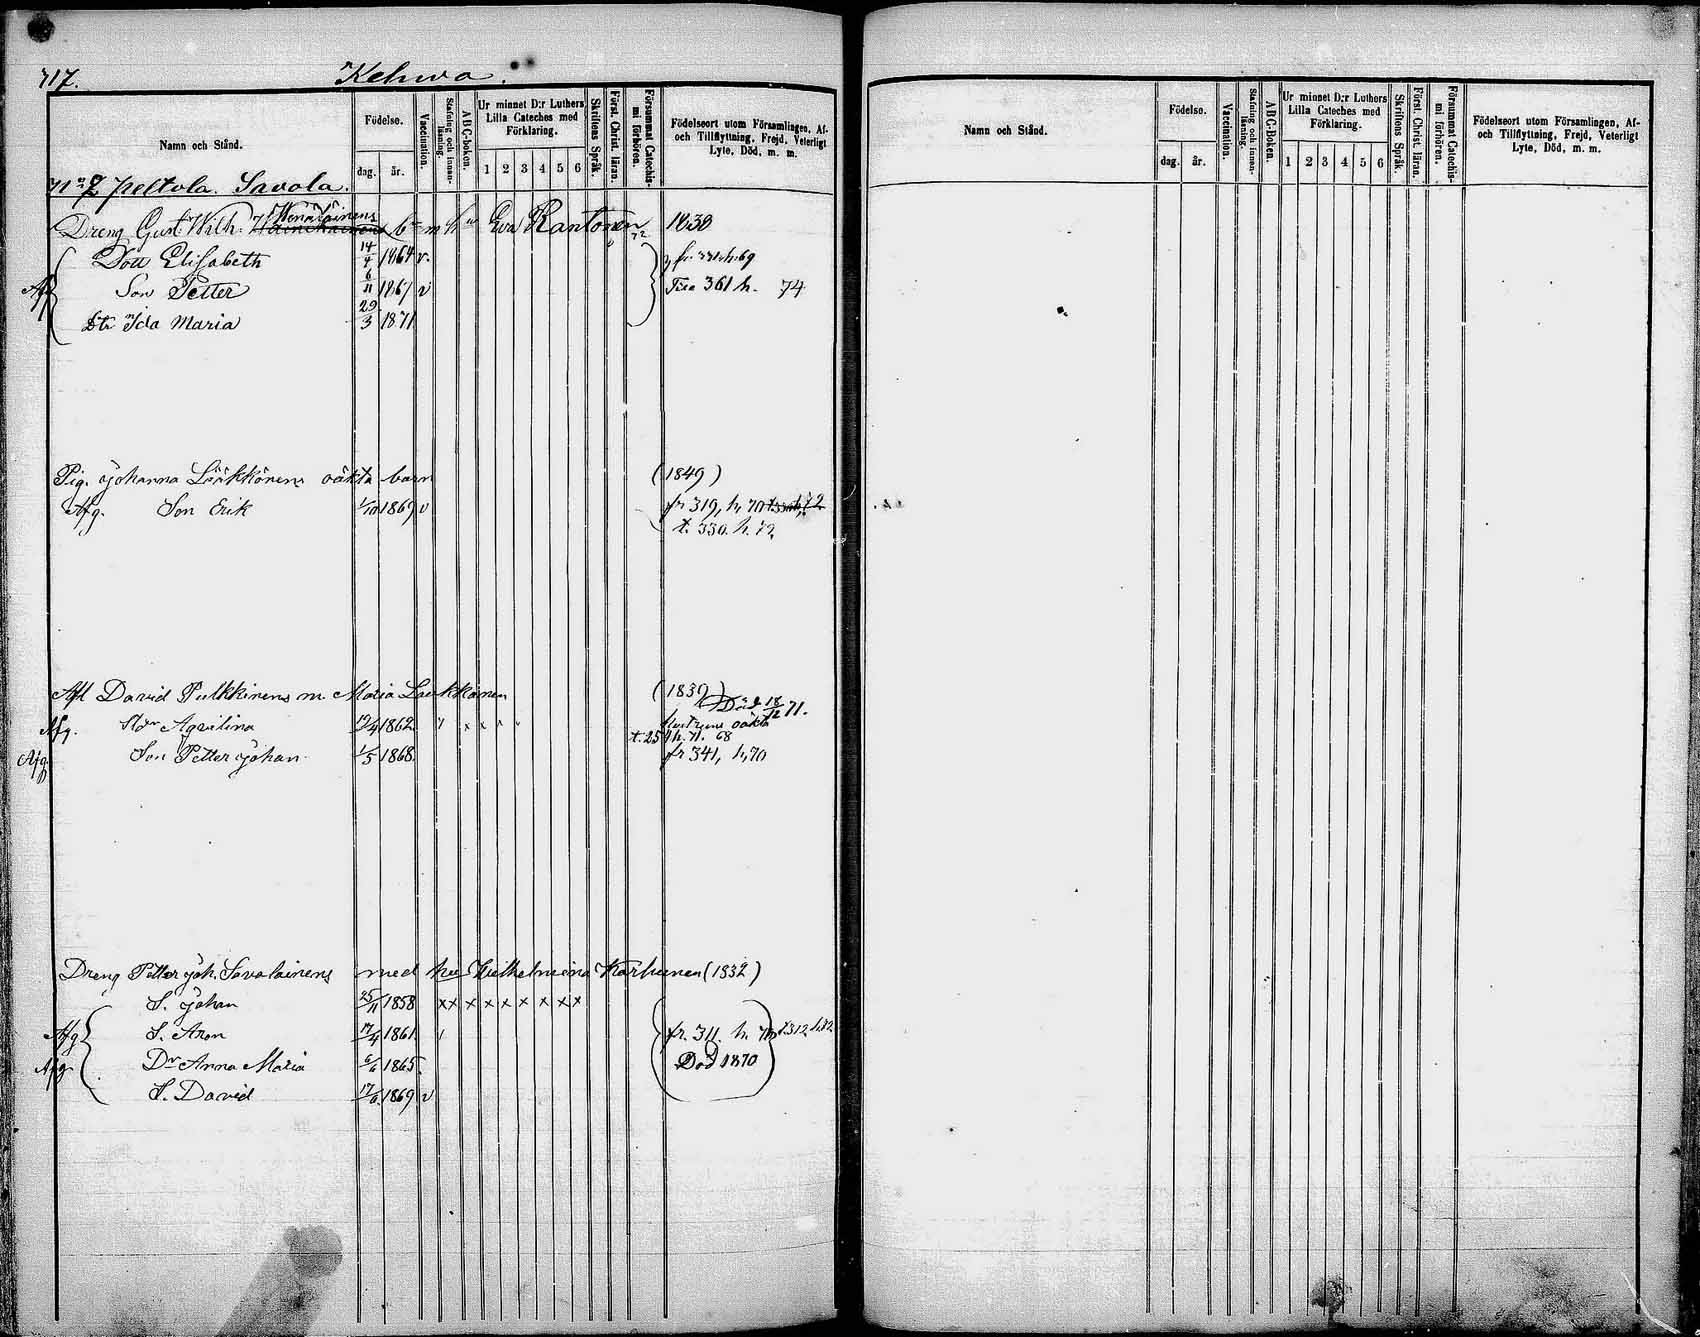 717.
Kehwa.
Namn och Stånd.
Födelse.
dag.
år.
Vaccination.
Stafning och innan-
läsning.
ABC-boken.
Ur minnet D:r Luthers
Lilla Cateches med
Förklaring.
1 2 3 4 5 6
Skriftens Språk.
Först. Christ. läran.
Försummat Catechis-
mi förhören.
Födelseort utom Församlingen, Af-
och Tillflyttning, Frejd, Veterligt
Lyte, Död, m. m.
No 2 Peltola. Savola.
Wenäläinens
Dreng Gust. Wilh. b:n m h:u Eva Rantonen 1838
Dott Elisabeth 14/4 1864 v. fr. 331. h. 69
Afg Son Petter 6/11 1867 v 361 h. 74
Dtr Ida Maria 29/3 1871
Pig. Johanna Lääkkönens oäkta barn (1849)
Afg. Son Erik 1/10 1869 v fr 319, h. 70
t. 330. h. 72
Afl David Pulkkinens m. Maria Laukkanen (1839)
Död 18/12 71.
Afg. Aqvilina 19/4 1862 x x oäkta
t. 259 h. 71. 68
Afg. Son Petter Johan 1/5 1868 fr 341, h, 70
Dreng Petter Joh. Savolainens med hu Wilhelmina Karhunen (1832)
S. Johan 25/11 1858 x x x x x x x x x
Afg S. Aron 17/4 1861 fr. 311. h. 70 t. 312 h. 72
Afg Dr Anna Maria 6/6 1865 Död 1870
S. David 17/6 1869 v
Namn och Stånd.
Födelse.
dag.
år.
Vaccination.
Stafning och innan-
läsning.
ABC-Boken.
Ur minnet D:r Luthers
Lilla Cateches med
Förklaring.
1 2 3 4 5 6
Skriftens Språk.
Först. Christ. läran.
Försummat Catechis-
mi förhören.
Födelseort utom Församlingen, Af-
och Tillflyttning, Frejd, Veterligt
Lyte, Död, m. m.